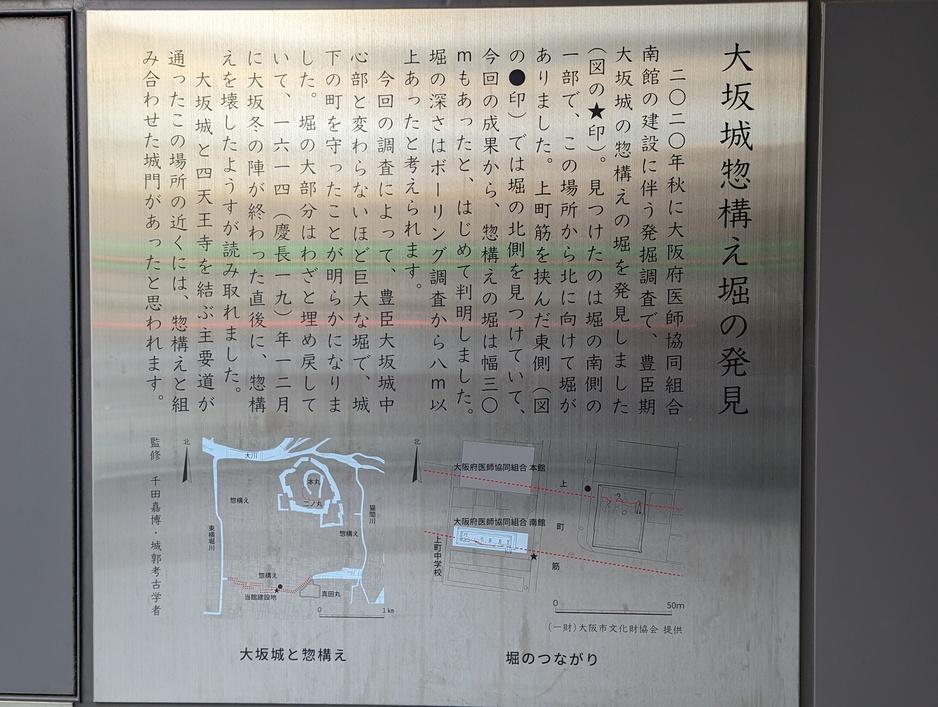 大坂城惣構え堀の発見
二〇二〇年秋に大阪府医師協同組合
南館の建設に伴う発掘調査で、豊臣期
大坂城の惣構えの堀を発見しました
（図の★印）。見つけたのは堀の南側の
一部で、この場所から北に向けて堀が
ありました。上町筋を挟んだ東側（図
の●印）では堀の北側を見つけていて、
今回の成果から、惣構えの堀は幅三〇
ｍもあったと、はじめて判明しました。
堀の深さはボーリング調査から八ｍ以
上あったと考えられます。
今回の調査によって、豊臣大坂城中
心部と変わらないほど巨大な堀で、城
下の町を守ったことが明らかになりま
した。堀の大部分はわざと埋め戻して
いて、一六一四（慶長一九）年一二月
に大坂冬の陣が終わった直後に、惣構
えを壊したようすが読み取れました。
大坂城と四天王寺を結ぶ主要道が
通ったこの場所の近くには、惣構えと組
み合わせた城門があったと思われます。
監修 千田嘉博・城郭考古学者
北
大川
本丸
二ノ丸
惣構え
猫間川
惣構え
東横堀川
惣構え
当館建設地
真田丸
0 1km
大坂城と惣構え
北
大阪府医師協同組合 本館
上
大阪府医師協同組合 南館
町
上町中学校
筋
0 50m
（一財）大阪市文化財協会 提供
堀のつながり